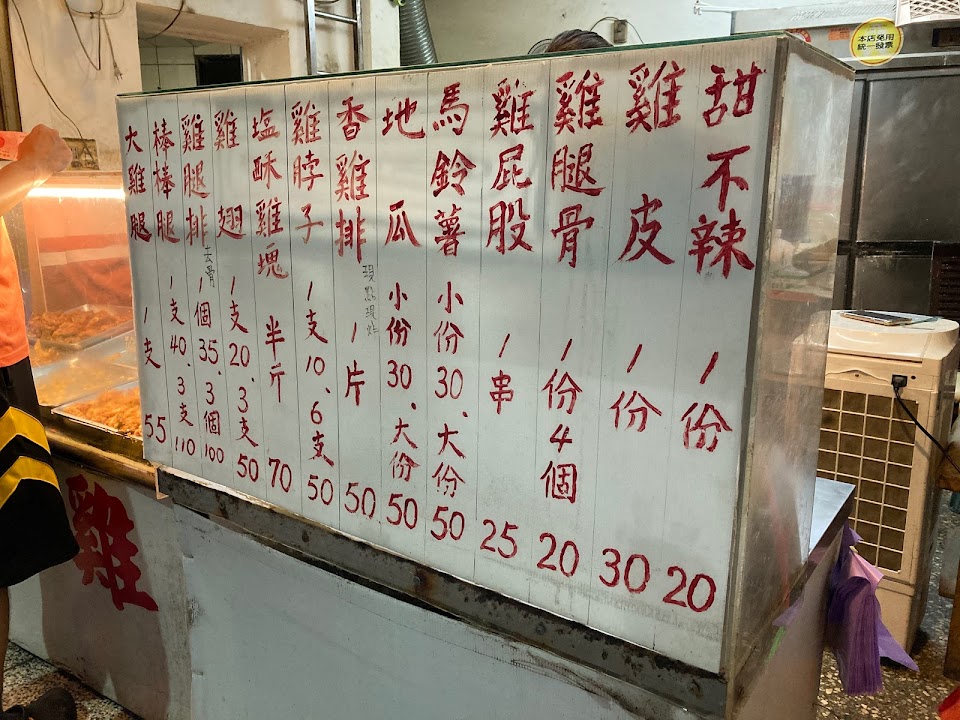 甜不辣 1份 20
雞皮 1份 30
雞腿骨 1份4個 20
雞屁股 1串 25
馬鈴薯 小份30、大份50
地瓜 小份30、大份50
香雞排 現點現炸 1片 50
雞脖子 1支10、6支50
塩酥雞塊 半斤 70
雞翅 1支20、3支50
雞腿排 去骨 1個35、3個100
棒棒腿 1支40、3支110
大雞腿 1支 55
本店免用
統一發票
雞